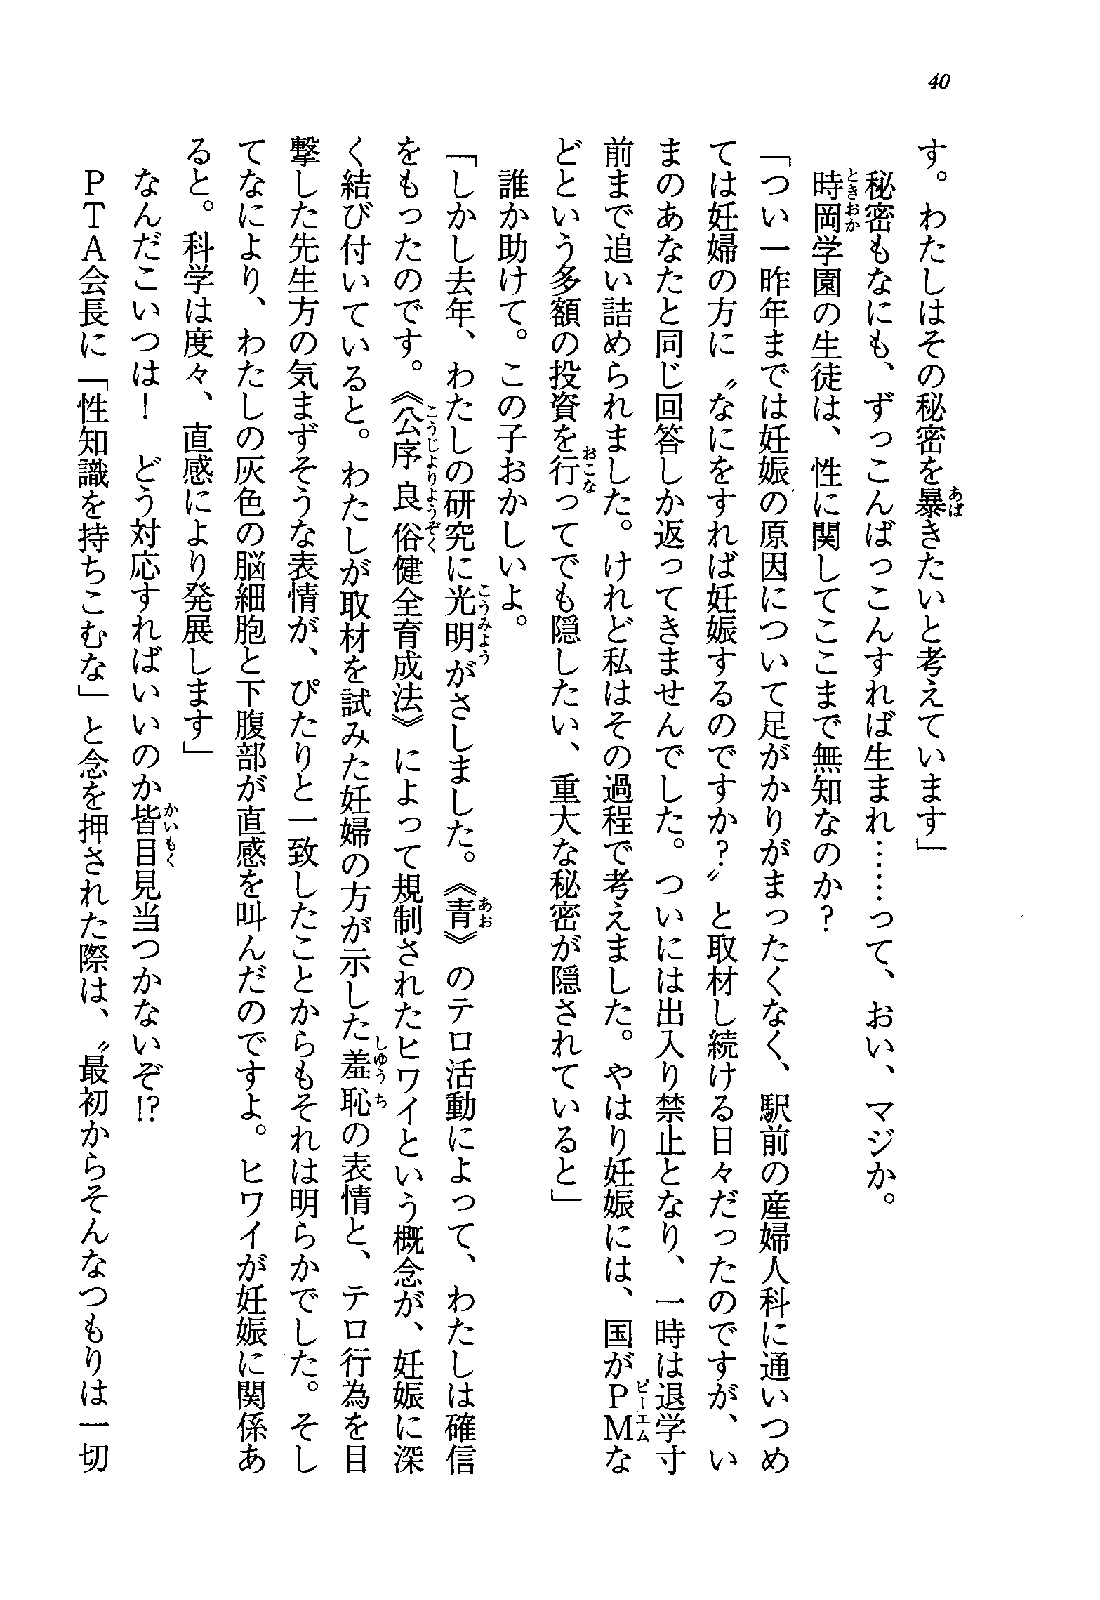 40
す。わたしはその秘密を暴きたいと考えています」
秘密もなにも、ずっこんばっこんすれば生まれ……って、おい、マジか。
時岡学園の生徒は、性に関してここまで無知なのか？
「つい一昨年までは妊娠の原因について足がかりがまったくなく、駅前の産婦人科に通いつめ
ては妊婦の方に〝なにをすれば妊娠するのですか？〟と取材し続ける日々だったのですが、い
まのあなたと同じ回答しか返ってきませんでした。ついには出入り禁止となり、一時は退学寸
前まで追い詰められました。けれど私はその過程で考えました。やはり妊娠には、国がＰＭな
どという多額の投資を行ってでも隠したい、重大な秘密が隠されていると」
誰か助けて。この子おかしいよ。
「しかし去年、わたしの研究に光明がさしました。《青》のテロ活動によって、わたしは確信
をもったのです。《公序良俗健全育成法》によって規制されたヒワイという概念が、妊娠に深
く結び付いていると。わたしが取材を試みた妊婦の方が示した羞恥の表情と、テロ行為を目
撃した先生方の気まずそうな表情が、ぴたりと一致したことからもそれは明らかでした。そし
てなにより、わたしの灰色の脳細胞と下腹部が直感を叫んだのですよ。ヒワイが妊娠に関係あ
ると。科学は度々、直感により発展します」
なんだこいつは！　どう対応すればいいのか皆目見当つかないぞ!?
ＰＴＡ会長に「性知識を持ちこむな」と念を押された際は、〝最初からそんなつもりは一切